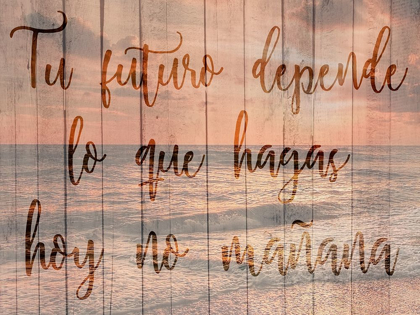 Tu futuro depende
lo que hagas
hoy no mañana